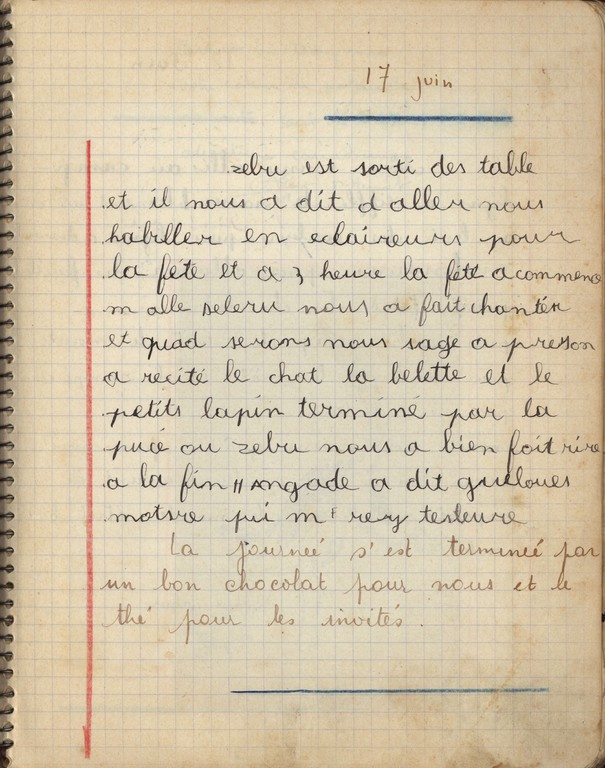 17 juin
zebu est sorti des table
et il nous a dit d aller nous
habiller en eclaireurs pour
la féte et a 3 heure la féte a commence
m alle seleru nous a fait chanter
et quad serons nous sage a preson
a recité le chat la belette et le
petits lapin terminé par la
pucé ou zebu nous a bien foit rire
a la fin angade a dit quelques
motsre pui m rey
La journeé s'est termineé par
un bon chocolat pour nous et le
thé pour les invités.